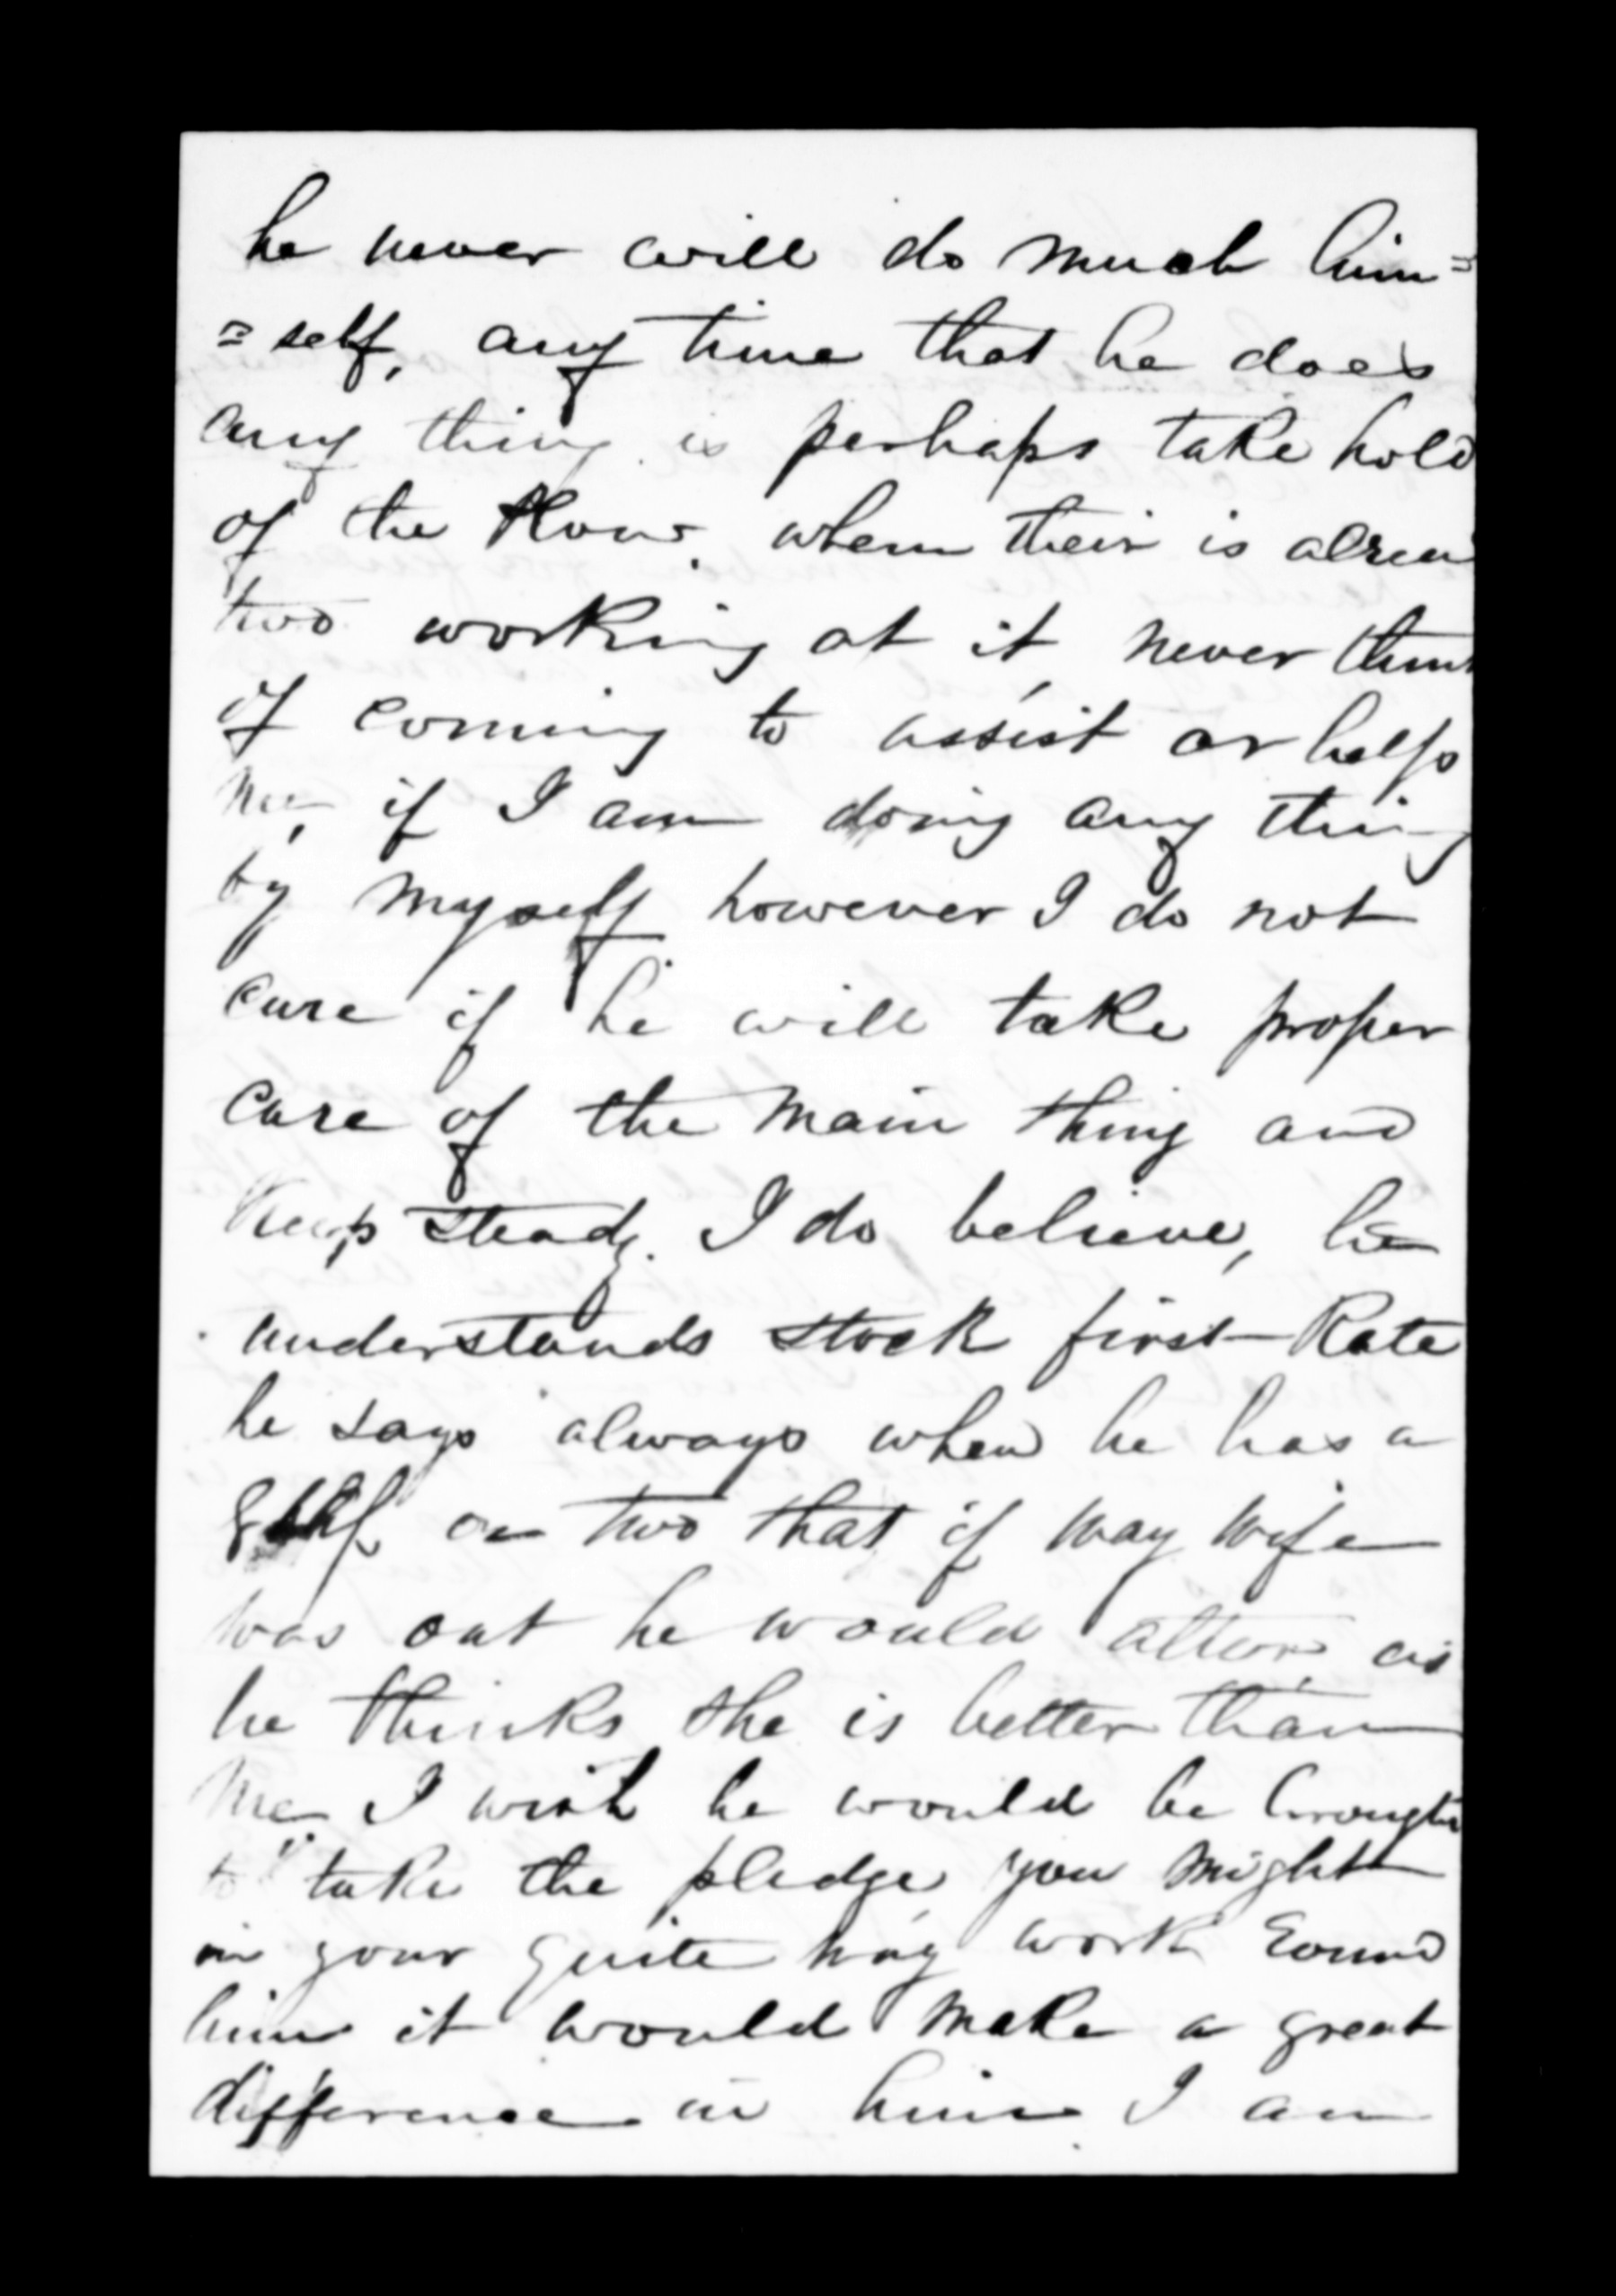 he never will do much him=
=self, any time that he does
any thing is perhaps take hold
of the Plow, when their is alrea
two working at it, never think
of coming to assist or help
me, if I am doing any thing
by myself however I do not
care if he will take proper
care of the main thing and
Keep steady. I do believe, he
understands stock first-Rate
he says always when he has a
or two that if may wife
was out he would alter, as
he thinks she is better than
me I wish he would be brought
to take the pledge, you might
in your quite way work round
him it would make a great
difference in him I am